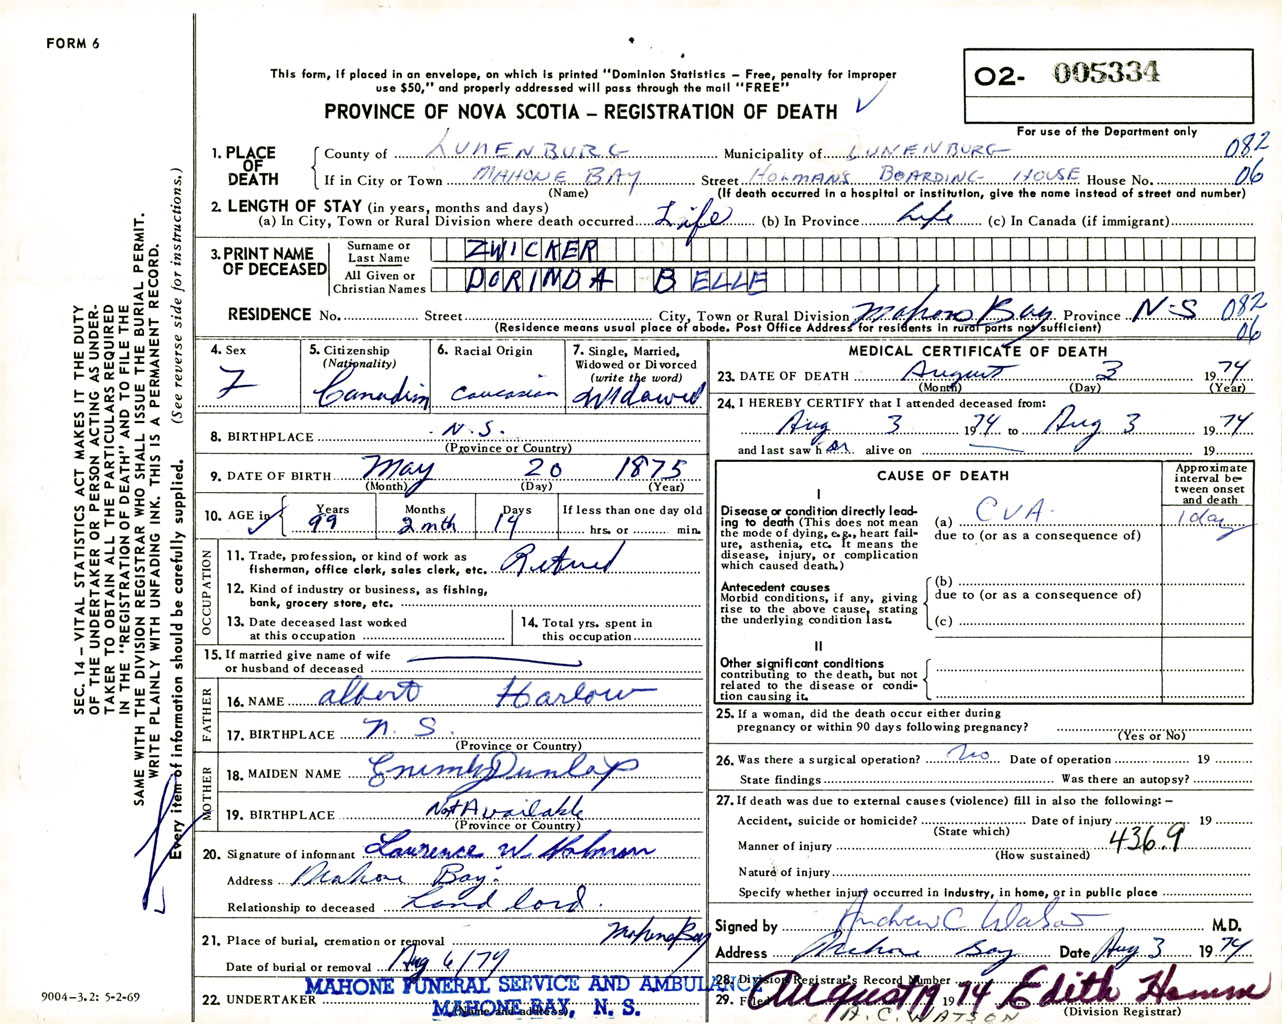 FORM 6
This form, if placed in an envelope, on which is printed "Dominion Statistics – Free, penalty for improper
use $50," and properly addressed will pass through the mail "FREE"
PROVINCE OF NOVA SCOTIA – REGISTRATION OF DEATH
O2- 005334
For use of the Department only
SEC. 14 – VITAL STATISTICS ACT MAKES IT THE DUTY
OF THE UNDERTAKER OR PERSON ACTING AS UNDER-
TAKER TO OBTAIN ALL THE PARTICULARS REQUIRED
IN THE "REGISTRATION OF DEATH" AND TO FILE THE
SAME WITH THE DIVISION REGISTRAR WHO SHALL ISSUE THE BURIAL PERMIT.
WRITE PLAINLY WITH UNFADING INK. THIS IS A PERMANENT RECORD.
Every item of information should be carefully supplied. (See reverse side for instructions.)
1. PLACE OF DEATH
County of LUNENBURG Municipality of LUNENBURG 082
If in City or Town MAHONE BAY Street HOLMANS BOARDING HOUSE House No. 06
(Name) (If death occurred in a hospital or institution, give the name instead of street and number)
2. LENGTH OF STAY (in years, months and days)
(a) In City, Town or Rural Division where death occurred Life (b) In Province Life (c) In Canada (if immigrant)
3. PRINT NAME OF DECEASED
Surname or Last Name ZWICKER
All Given or Christian Names DORINDA BELLE
RESIDENCE No. Street City, Town or Rural Division Mahone Bay Province N-S 082
06
(Residence means usual place of abode. Post Office Address for residents in rural parts not sufficient)
4. Sex
F
5. Citizenship
(Nationality)
Canadian
6. Racial Origin
Caucasian
7. Single, Married,
Widowed or Divorced
(write the word)
Widowed
8. BIRTHPLACE N.S.
(Province or Country)
9. DATE OF BIRTH May 20 1875
(Month) (Day) (Year)
10. AGE in Years 99 Months 2 mth Days 14
If less than one day old
hrs. or min.
OCCUPATION
11. Trade, profession, or kind of work as
fisherman, office clerk, sales clerk, etc. Retired
12. Kind of industry or business, as fishing,
bank, grocery store, etc.
13. Date deceased last worked
at this occupation
14. Total yrs. spent in
this occupation
15. If married give name of wife
or husband of deceased
FATHER
16. NAME Albert Harlow
17. BIRTHPLACE N.S.
(Province or Country)
MOTHER
18. MAIDEN NAME Dunlap
19. BIRTHPLACE Not Available
(Province or Country)
20. Signature of informant Laurence W. Holman
Address Mahone Bay.
Relationship to deceased Land lord.
21. Place of burial, cremation or removal Mahone Bay
Date of burial or removal Aug 6/74
22. UNDERTAKER MAHONE FUNERAL SERVICE AND AMBULANCE
MAHONE BAY, N. S.
(Name and address)
9004–3.2: 5-2-69
MEDICAL CERTIFICATE OF DEATH
23. DATE OF DEATH August 3 1974
(Month) (Day) (Year)
24. I HEREBY CERTIFY that I attended deceased from:
Aug 3 1974 to Aug 3 1974
and last saw her alive on 19
CAUSE OF DEATH
Approximate
interval be-
tween onset
and death
I
Disease or condition directly lead-
ing to death (This does not mean
the mode of dying, e.g., heart fail-
ure, asthenia, etc. It means the
disease, injury, or complication
which caused death.)
(a) CVA. 1 day
due to (or as a consequence of)
Antecedent causes
Morbid conditions, if any, giving
rise to the above cause, stating
the underlying condition last.
(b)
due to (or as a consequence of)
(c)
II
Other significant conditions
contributing to the death, but not
related to the disease or condi-
tion causing it.
25. If a woman, did the death occur either during
pregnancy or within 90 days following pregnancy?
(Yes or No)
26. Was there a surgical operation? No Date of operation 19
State findings Was there an autopsy?
27. If death was due to external causes (violence) fill in also the following: –
Accident, suicide or homicide? Date of injury 19
(State which)
Manner of injury 436.9
(How sustained)
Nature of injury
Specify whether injury occurred in industry, in home, or in public place
Signed by Andrew C Watson M.D.
Address Mahone Bay Date Aug 3 1974
28. Division Registrar's Record Number
29. Filed August 19 1974 Edith Hamm
A. C. WATSON (Division Registrar)